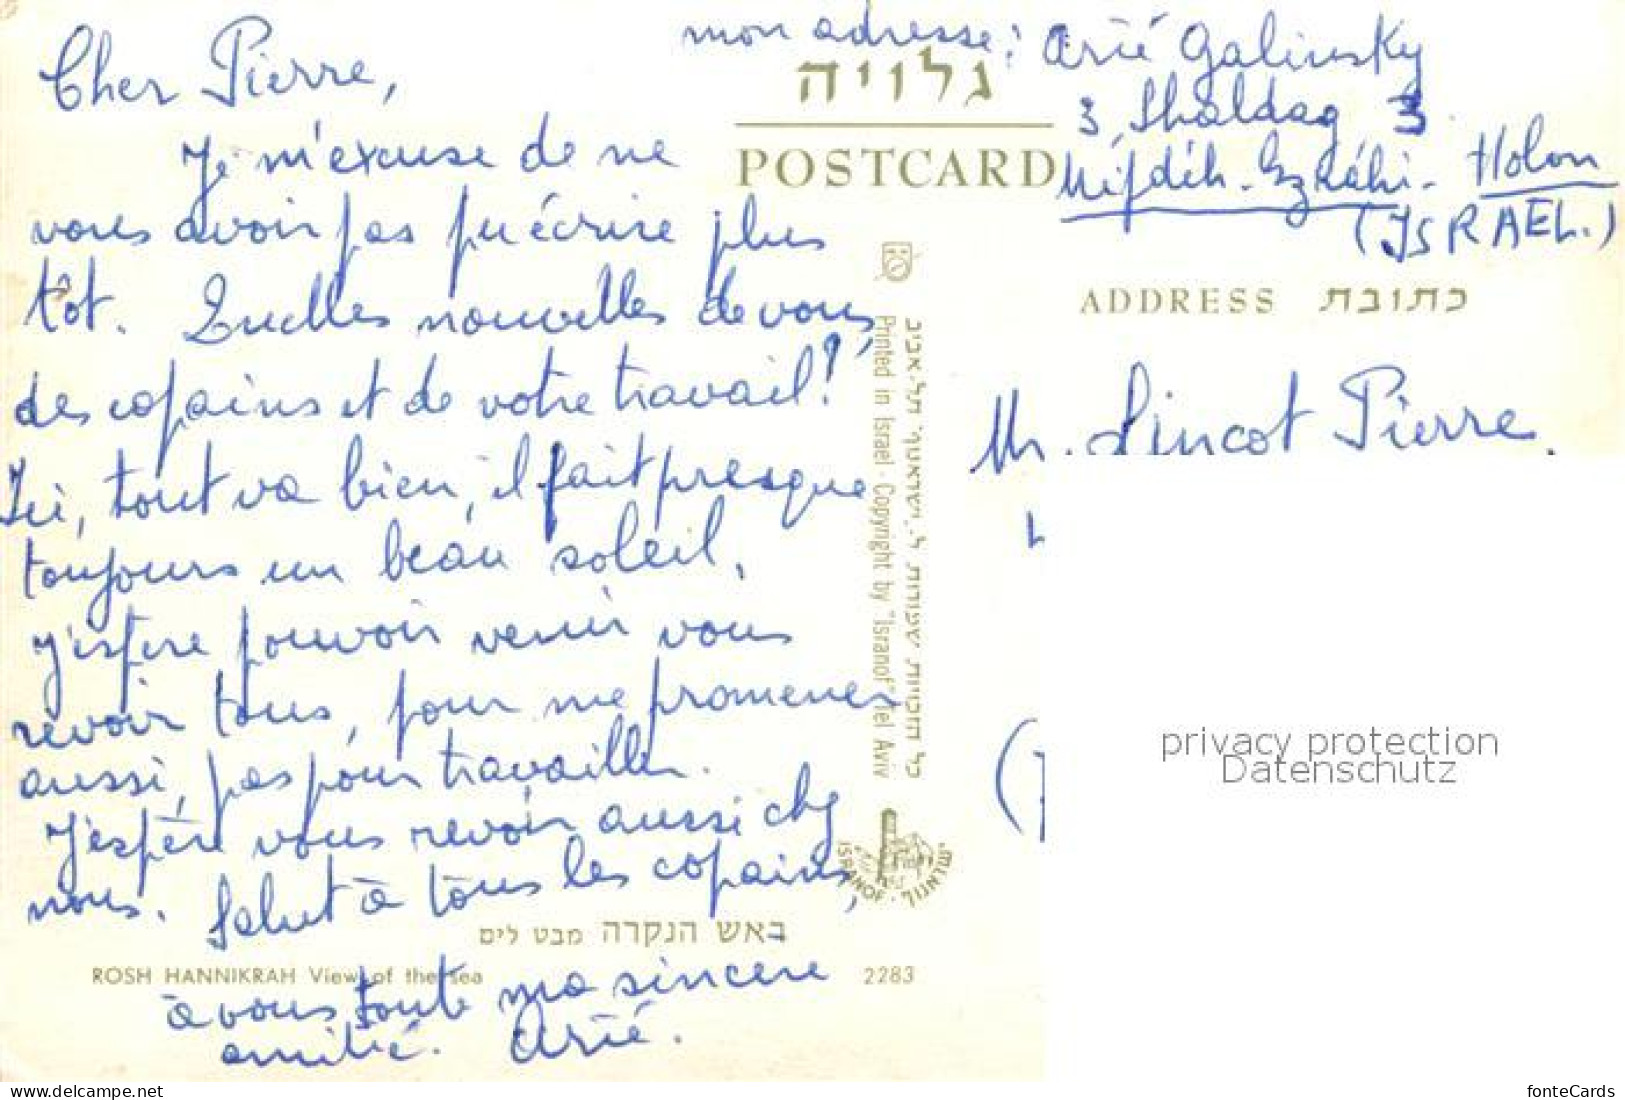 Cher Pierre,
Je m'excuse de ne
vous avoir pas pu écrire plus
tôt. Quelles nouvelles de vous,
des copains et de votre travail?
Ici, tout va bien, il fait presque
toujours un beau soleil.
J'espère pouvoir venir vous
revoir tous, pour me promener
aussi, pas pour travailler.
J'espère vous revoir aussi chez
nous. Salut à tous les copains,
à vous toute ma sincere
amitié. Arié.
באש הנקרה מבט לים
ROSH HANNIKRAH View of the sea 2283
mon adresse: Arié Galinsky
3, Shaldag 3
Holon
(ISRAEL.)
גלויה
POSTCARD
כל הזכויות שמורות ל"ישראנוף" תל-אביב
Printed in Israel · Copyright by "Isranof" Tel Aviv
ISRANOF
ADDRESS כתובת
Mr. Lincot Pierre.
privacy protection
Datenschutz
My-Shop: 2763163
fonteCards